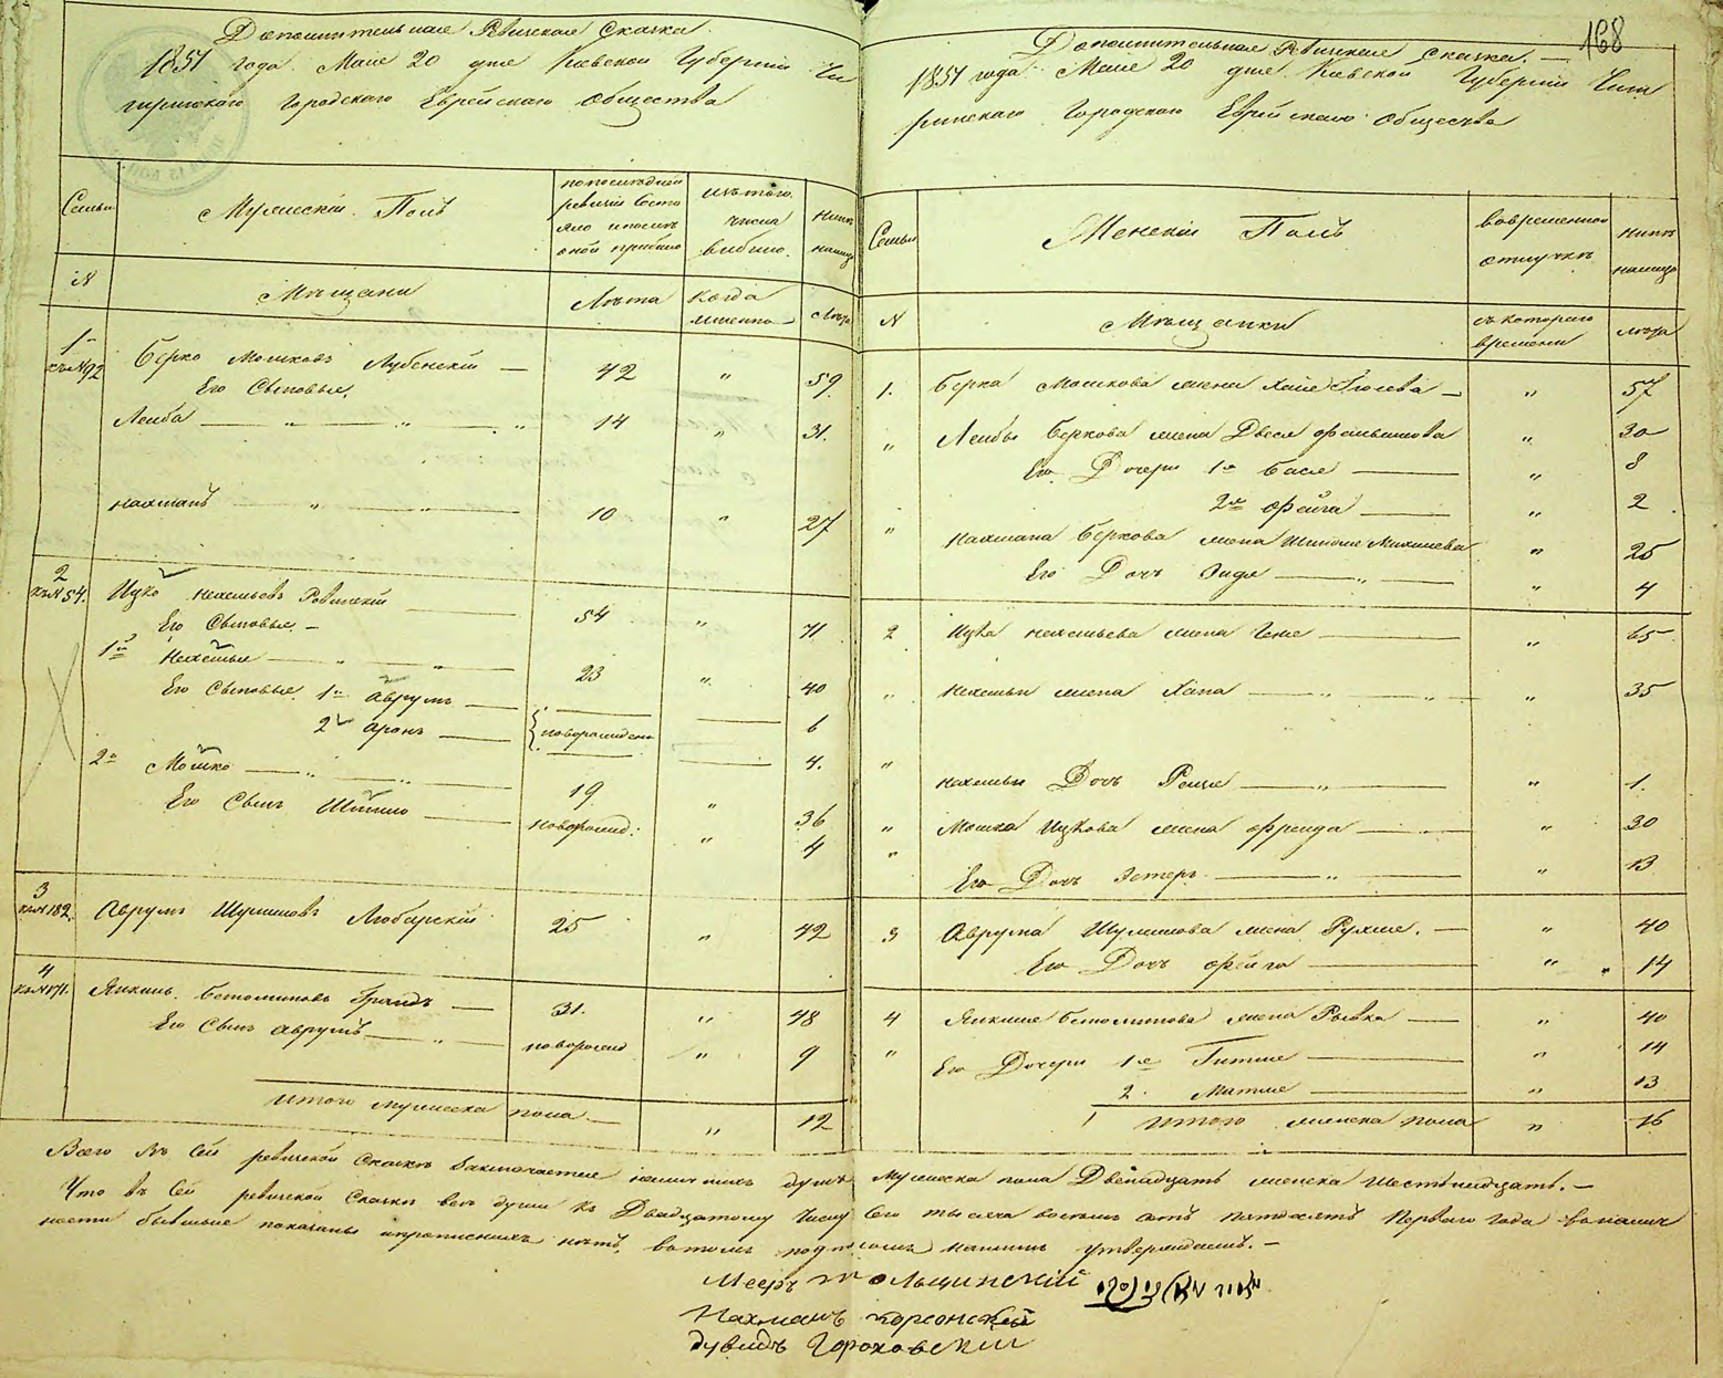 Дополнительная Ревизская Сказка
1851 года Мая 20 дня Киевской Губерніи Чи
гиринскаго Городскаго Еврейскаго Общества
Семьи
Мужескій Полъ
попоследней
ревизіи Состо
яло ипослѣ
оной прибыло
изъ того
числа
выбыло.
Нынѣ
налицо
N
Мѣщани
Лѣта
Когда
именно
Лѣта
1
къ N 92
Берко Мошковъ Лубенскій — 42 „ 59.
Его Сыновья,
Леиба — „ — „ — „ 14 „ 31.
Нахманъ — „ — „ — 10 „ 27
2
къ N 54.
Ицко Нехемьевъ Ровинскій — 54 „ 71
Его Сыновья. —
1й Нехемья — „ — „ — 23 „ 40
Его Сыновья 1й Аврумъ — 6
2й Аронъ — новорожден — 4.
2й Мошко — „ — „ — 19 „ 36
Его Сынъ Шлиомо — новорожд: „ 4
3
къ N 182.
Аврумъ Шулимовъ Любарскій 25 „ 42
4
къ N 171.
Янкиль Грандъ — 31. „ 48
Его Сынъ Аврумъ — „ — новорожд „ 9
Итого мужеска пола — „ 12
168
Дополнительная Ревизская Сказка. —
1851 года Мая 20 дня Киевской Губерніи Чиги
ринскаго Городскаго Еврейскаго Общества
Семьи
Женскій Полъ
вовременной
отлучкѣ
Нынѣ
налицо
N
Мѣщанки
съ котораго
времени
лѣта
1. Берка Мошкова жена Хая — „ 57
„ Леибы Беркова жена Двеся „ 30
Его Дочери 1я Бася — „ 8
2я Фейга — „ 2
„ Нахмана Беркова жена „ 25
Его Дочь Энця — „ — „ 4
2 Ицка Нехемьева жена Геня — „ 65
„ Нехемьи жена Хана — „ — „ — „ 35
„ Нехемьи Дочь Реиза — „ — „ 1.
„ Мошка Ицкова жена Фреида — „ — „ 30
„ Его Дочь Эстеръ — „ — „ 13
3 Аврума Шулимова жена Рухля. — „ 40
Его Дочь Фейга — „ 14
4 Янкиля жена Рывка — „ 40
„ Его Дочери 1я Гитля — „ 14
2. Матля — „ 13
Итого женска пола „ 16
Всего въ Сей ревизской Сказкѣ Заключается наличныхъ душъ Мужеска пола Двенадцать женска Шестьнадцать. —
Что въ Сей ревизской Сказкѣ всѣ души къ Двадцатому Числу Сего тысяча восемь сотъ пятдесятъ Перваго года вналич
ности бывшые показаны ипрописныхъ нѣтъ, вътомъ подписомъ нашимъ утверждаемъ. —
Мееръ Тольщинскій
Нахманъ Корсонскій
Дувидъ Гороховскій